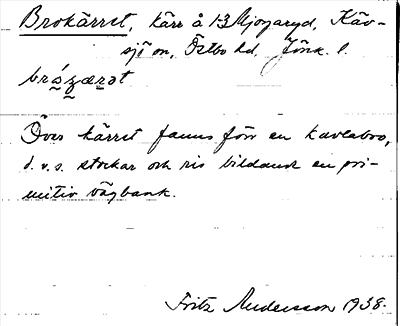 Brokärret, kärr å 1-3 Mjogaryd, Käv-
sjö sn, Östbo hd, Jönk. l.
Över kärret fanns förr en kavlabro,
d.v.s. stockar och ris bildande en pri-
mitiv vägbank.
Fritz Andersson 1938.